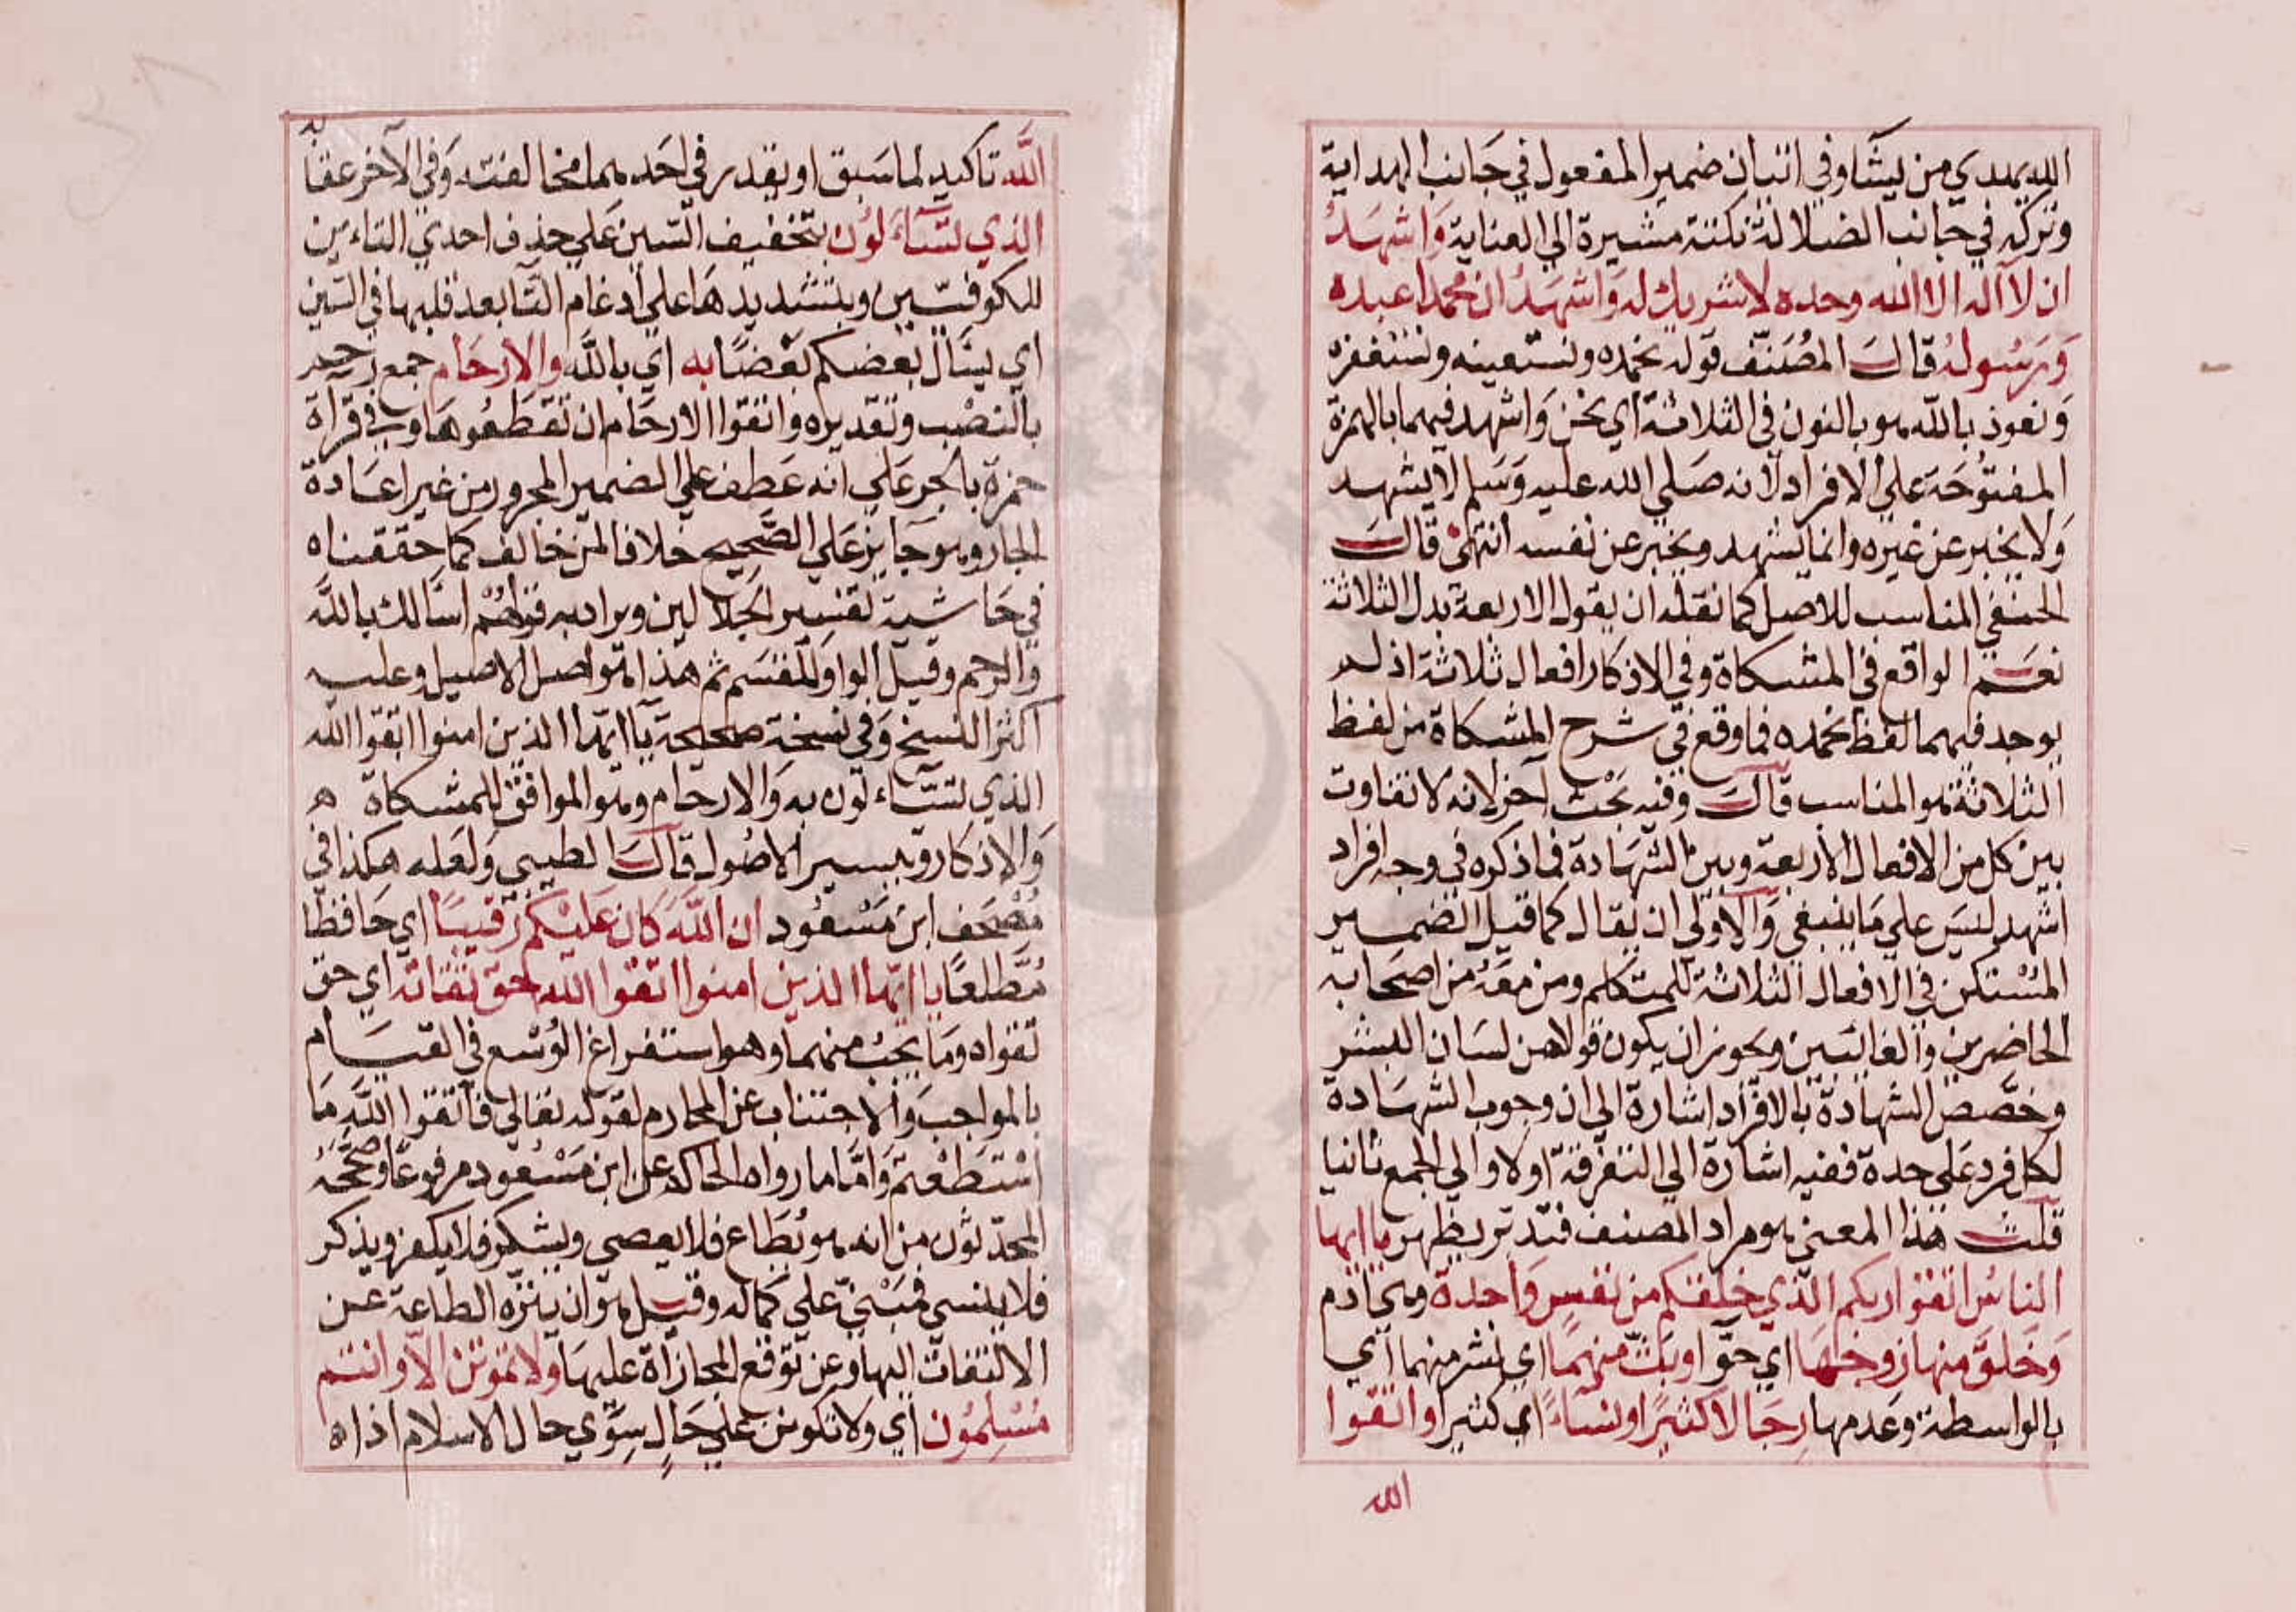 الله يهدي من يشاء وفي اتيان ضمير المفعول في جانب الهداية
وتركه في جانب الضلالة نكتة مشيرة الي العناية وَاشهَدُ
ان لا اله الا الله وحده لا شريك له وَاشهَدُ ان محمدا عبده
وَرَسُولهُ قال المصَنّف قوله نحمده ونستعينه ونستغفره
وَنعوذ بالله هو بالنون في الثلاثة اي نحن وَاشهد فيهما بالهمزة
المفتوُحَة علي الافراد لانه صَلي الله عليه وَسَلم لا يشهد
وَلا يخبر عن غيره وانما يشهد ويخبر عن نفسه انتهي قالَ
الحنفي المناسب للاصل كما نقله ان يقول الاربعة بدل الثلاثة
نعَم الواقع في المشكاة وفي الاذكار افعال ثلاثة اذ لم
يوجد فيهما لفظ نحمده فما وقع في شرح المشكاة من لفظ
الثلاثة هو المناسب قالَ وفيه بَحْث آخر لانه لا تفاوت
بين كل من الافعال الاربعة وبين الشهَادة فما ذكره في وجه افراد
اشهد ليسَ علي مَا ينبغي وَالاولي ان يقال كما قيل الضمير
المسْتكن في الافعال الثلاثة للمتكلم ومن معَهُ من اصحَابه
الحاضرين والغائبين ويجوز ان يكون قولا من لسَان البشر
وخصّص الشهادة بالافراد اشارة الي ان وجوب الشهَادة
لكل فرد عَلي حدة ففيه اشارة الي التفرقة اولا والي الجمع ثانيا
قلت هذا المعني هو مراد المصنف فتدبر يظهر يا ايها
الناسُ اتقوا ربكم الذي خلقكم من نفسٍ وَاحدة وهي آدم
وَخَلقَ منها زوجَهَا اي حوّا وبَثّ منهمَا اي نشر منهما اي
بالواسطة وعَدمها رجَالا كثيرًا ونسَاءً اي كثيرا واتقوا
الله
اللَّه تاكيد لما سَبق او يقدر في احَدهما مخالفته وَفي الآخر عقابه
الذي تسَّاءَلوُن بتخفيف السّين عَلي حذف احدي التاءين
للكوفيّين وبتشديدهَا علي ادغام التا بعد قلبها في السّين
اي يسَال بعضكم بَعْضًا به اي باللَّه والارحَام جمع رحم
بالنصْب وتقديره واتقوا الارحَام ان تقطعُوهَا وفي قرآة
حمزة بالجر عَلي انه عَطف علي الضمير المجرور من غير اعَادة
الجار وهو جَايز عَلي الصَّحيح خلافا لمن خالف كما حققناه
في حَاشية تفسير الجَلالين ويراد به قولهُمْ اسَالك باللَّه
وَالرحم وقيل الواو للقسَم ثم هذا هو اصل الاصيل وعليه
اكثر النسخ وَفي نسخة صحيحة يَا ايهَا الذين امنوا اتقوا الله
الذي تسَّاءَلون به وَالارحَام وهو الموافق للمشكاة ه
وَالاذكار وتيسير الاصُول قالَ الطيبي وَلعَله هكذا في
مُصْحَف ابن مَسْعُود ان اللَّهَ كانَ عَليْكُم رَقيبًا اي حَافظا
مُطَّلعًا يا ايهَا الذين امنوا اتقوا الله حَق تقاته اي حق
تقواه ومَا يَجبُ منهما وهو استفراغ الوُسْع في القيَام
بالمواجب وَالاجتناب عن المحارم لقوله تعَالي فاتقوا اللَّه مَا
اسْتَطَعْتم وَامَّا ما رواه الحاكم عن ابن مَسْعُود مرفوعًا وصَحَّحَهُ
المحَدّثون من انه هو يُطَاع فلا يعصي ويشكر فلا يكفر ويذكر
فلا ينسي فمَبْنيّ علي كمَاله وقيل هو ان ينزّه الطاعة عن
الالتفات اليها وعن تَوقّع المجازاة عليهَا ولا تموتن الّا وانتم
مُسْلِمُون اي ولا تكونن علي حَالٍ سِوَي حال الاسلام اذا ه